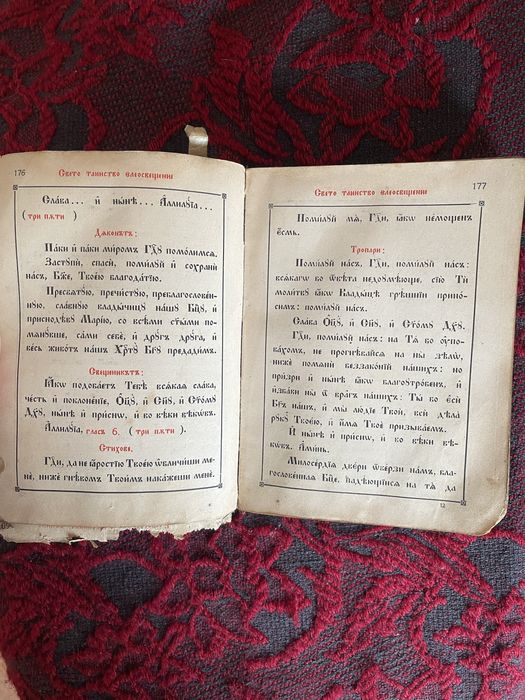 176
Свето таинство елеосвещения
Сла́ва... и҆ ны́нѣ... А҆ллилꙋ́їа...
( три пѫти )
Дѧконътъ:
Па́ки и҆ па́ки ми́ромъ Гдⷭ҇ꙋ помо́лимсѧ.
Застꙋпи́, спаси́, поми́лꙋй и҆ сохрани́
на́съ, Бж҃е, Твое́ю благода́тїю.
Пресвѧтꙋ́ю, пречи́стꙋю, преблагослове́н-
нꙋю, сла́внꙋю влады́чицꙋ на́шꙋ Бцⷣꙋ, и҆
присно́дѣвꙋ Марі́ю, со всѣ́ми ст҃ы́ми по-
мѧнꙋ́вше, са́ми себѐ, и҆ дрꙋ́гъ дрꙋ́га, и҆
ве́сь живо́тъ на́шъ Хрⷭ҇тꙋ̀ Бг҃ꙋ предади́мъ.
Свещеникътъ:
Ꙗ҆́кѡ подоба́етъ Тебѣ̀ всѧ́каѧ сла́ва,
че́сть и҆ поклоне́нїе, Ѻ҆ц҃ꙋ̀, и҆ Сн҃ꙋ, и҆ Ст҃о́мꙋ
Дх҃ꙋ, ны́нѣ и҆ при́снѡ, и҆ во вѣ́ки вѣкѡ́въ.
А҆ллилꙋ́їа, гласъ 6. ( три пѫти ).
Стихове.
Гдⷭ҇и, да не ꙗ҆́ростїю Твое́ю ѡ҆бличи́ши ме-
нѐ, нижѐ гнѣ́вомъ Твои́мъ нака́жеши менѐ.
Свето таинство елеосвещения
177
Поми́лꙋй мѧ̀, Гдⷭ҇и, ꙗ҆́кѡ не́мощенъ
є҆́смь.
Тропари:
Поми́лꙋй на́съ, Гдⷭ҇и, поми́лꙋй на́съ:
всѧ́кагѡ бо ѿвѣ́та недоꙋмѣ́юще, сїю̀ Ти
моли́твꙋ ꙗ҆́кѡ Влады́цѣ грѣ́шнїи прино́-
симъ: поми́лꙋй на́съ.
Сла́ва Ѻ҆ц҃ꙋ̀, и҆ Сн҃ꙋ, и҆ Ст҃о́мꙋ Дх҃ꙋ.
Гдⷭ҇и, поми́лꙋй на́съ: на Тѧ́ бо ᲂу҆пo-
ва́хомъ, не прогнѣ́вайсѧ на ны̀ ѕѣлѡ̀,
нижѐ помѧнѝ беззако́нїй на́шихъ: но
при́зри и҆ ны́нѣ ꙗ҆́кѡ благоꙋтро́бенъ, и҆
и҆зба́ви ны̀ ѿ вра̑гъ на́шихъ: Ты́ бо є҆сѝ
Бг҃ъ на́шъ, и҆ мы̀ лю́дїе Твоѝ, всѝ дѣла̀
рꙋкꙋ̀ Твое́ю, и҆ и҆́мѧ Твоѐ призыва́емъ.
И҆ ны́нѣ и҆ при́снѡ, и҆ во вѣ́ки вѣ-
кѡ́въ. А҆ми́нь.
Милосе́рдїѧ две́ри ѿве́рзи на́мъ, бла-
гослове́ннаѧ Бцⷣе, надѣ́ющїисѧ на тѧ̀ да
12